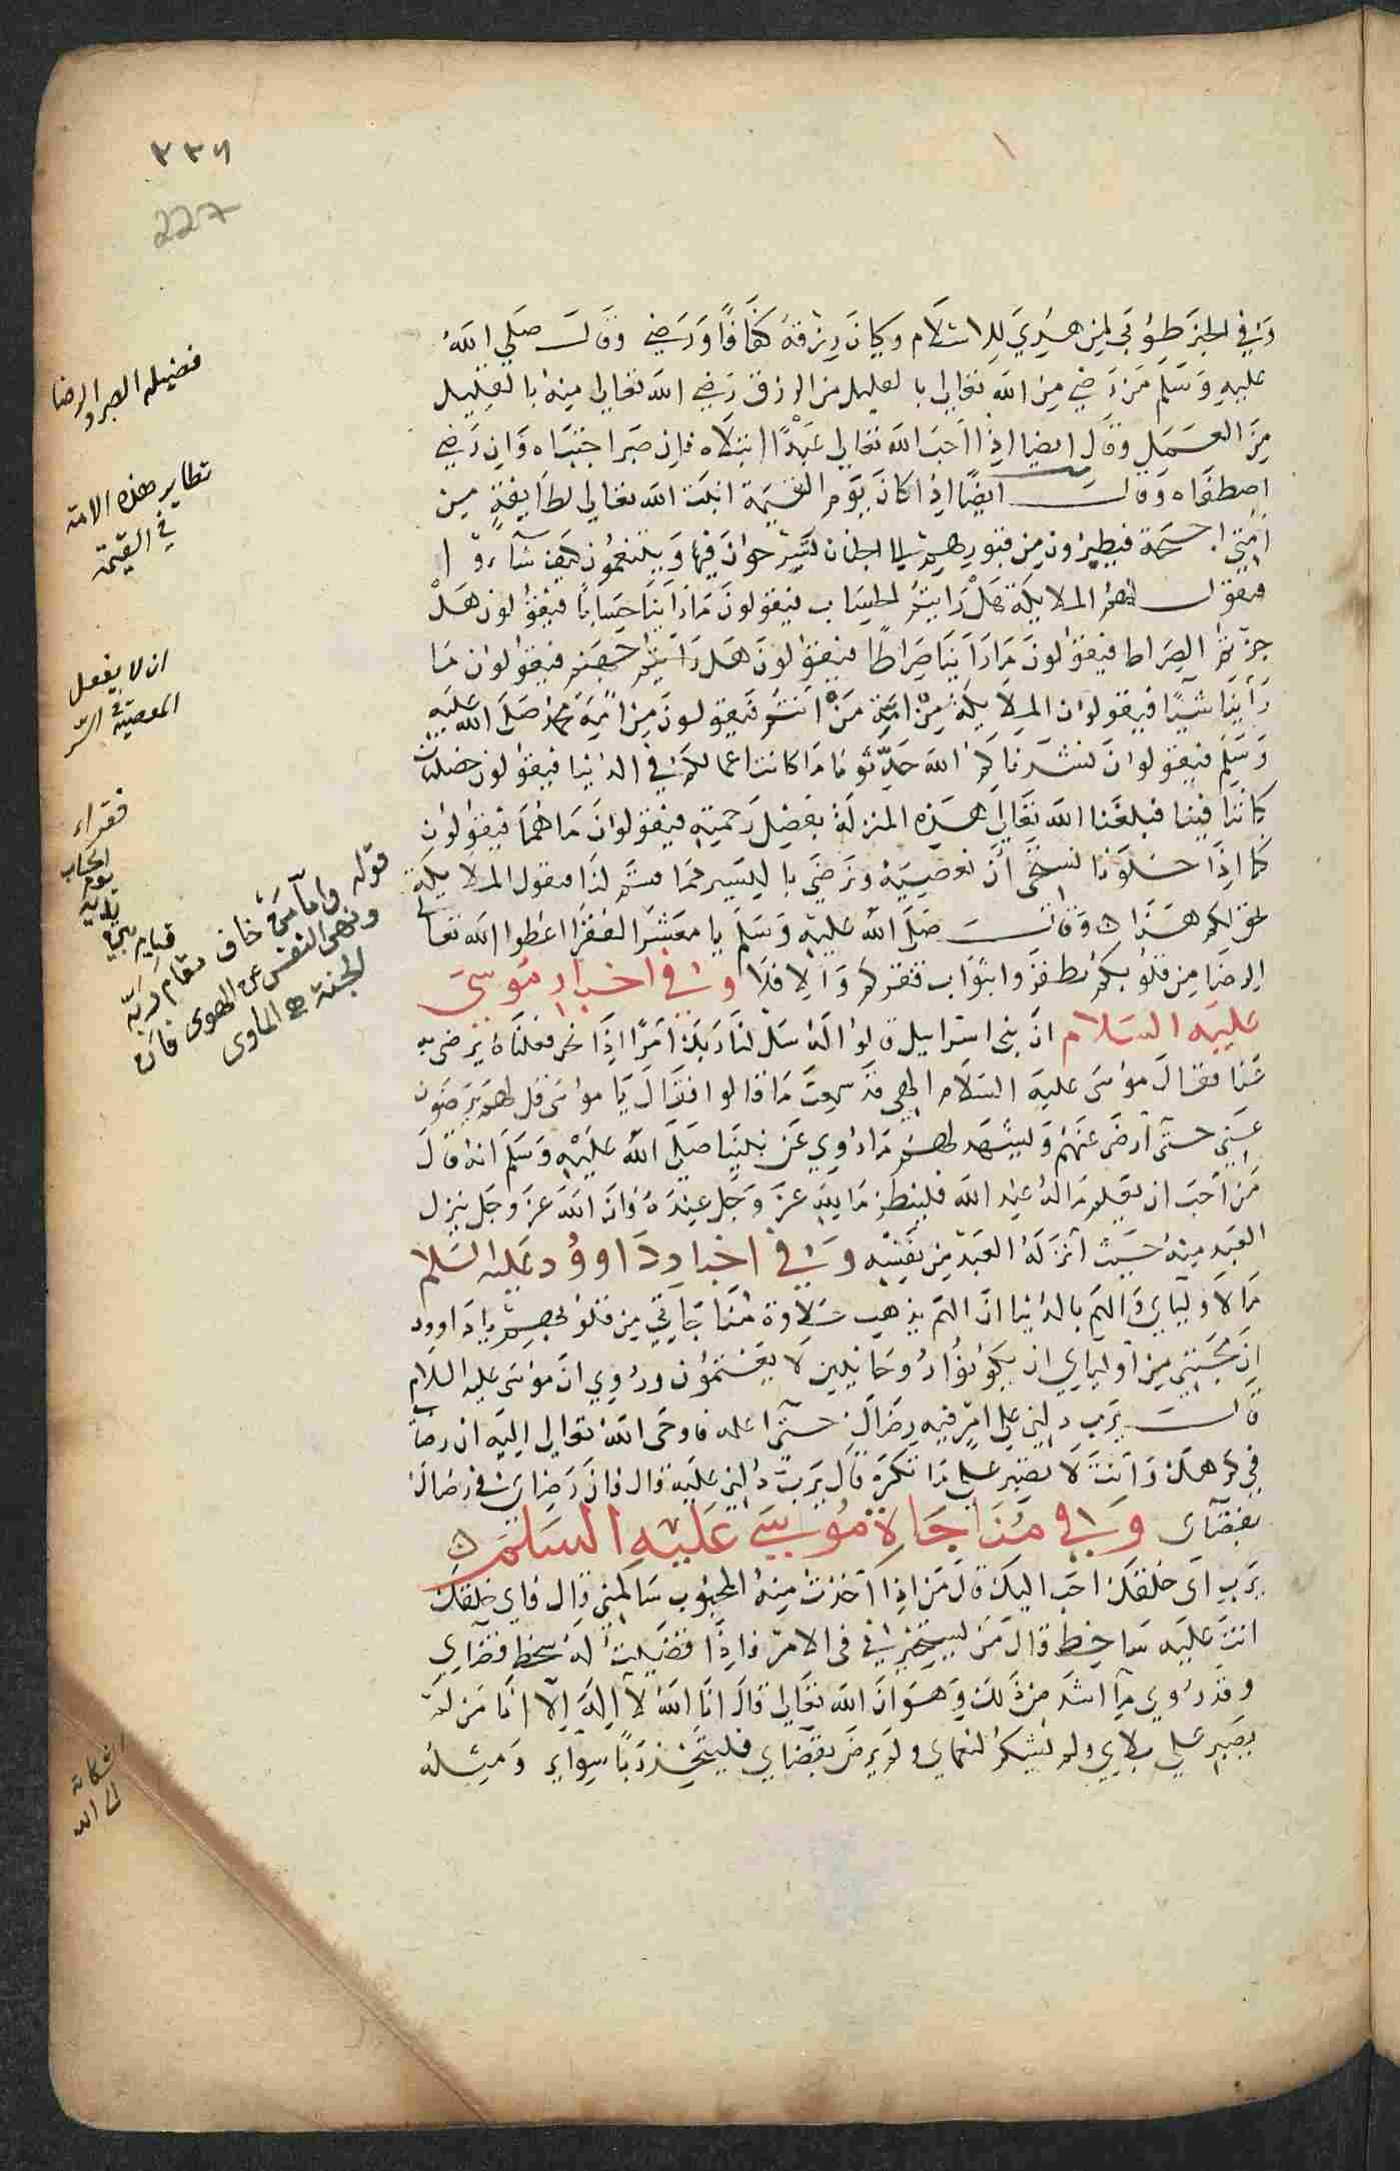 ٢٢٧
227
وَفي الخبَر طوُبَى لمِن هُدِيَ لِلاسْلَام وَكَانَ رِزْقهُ كفَافًا وَرَضِيَ وَقَالَ صَلى اللهُ
عليهِ وَسَلّم مَن رَضِيَ مِنَ الله تعَالى بالقليل من الرزق رَضِيَ الله تعَالى مِنهُ بالقليل
مِنَ العَمَلِ وقال ايضا اذا احَبَ الله تعَالى عَبْدًا ابتلاه فإن صَبرَ اجتبَاه وَان رَضِيَ
اصطفَاه وَقالَ ايضًا اذا كانَ يَوم القيمَة انبَتَ الله تعَالى لطَايفةٍ مِن
امّتي اجنحة فيطيرُون مِن قبُورِهم الى الجنان يَسْرَحُونَ فيها وَيتنعمُون كيفَ شآءوا
فيقول لهم الملايكة هَلْ رَايتمُ الحِسَاب فيَقولونَ مَا رَاَينَا حِسَابًا فيَقوُلون هَلْ
جزتمُ الصِرَاط فيَقولونَ مَا رَاَينَا صِرَاطًا فيَقولونَ هَل رَايتم جهنم فيقولوان مَا
رَأينَا شَيًا فيَقولوان الملاَيكة مِنْ امّةِ مَنْ انتمُ فيَقولونَ مِن امّة محمّد صَلى الله عليه
وَسَلم فيَقولوانَ نشدناكم الله حَدّثونا مَا كانت اعمالكم في الدنيا فيَقوُلون خصلتان
كانتا فينا فبلغنا الله تعَالى هَذه المنزلة بفضل رَحمته فيَقولوانَ مَا همَا فيَقولوان
كنا اذَا خلَونا نسْتحيَ أن نعصيهُ وَنرضَي باليسير ممّا قسَم لنَا فيقول الملايكة
يحق لكم هَذَا ۞ وَقالَ صَلى الله عَليه وَسَلم يا معَشَر الفقرَا اعَطوا الله تعَالى
الرضَا مِن قلوُبكمُ تظفرَوا بثوَاب فقركم وَالا فلا وفي اخبار مُوسىَ
عَليَه السَلام انَ بنى اسرايل قالوا لهُ سَل لنَا رَبكَ امَرًا اذَا نحن فعلنَاهُ يرَضى به
عَنا فقالَ موُسَى عليهَ السَلام الهي قدَ سمعتَ مَا قالوا فقالَ يَا موُسَى قل لهمَ يرَضَون
عَنى حتَى أرضَى عَنهمُ وَيشهَد لهَذا مَا رُوِي عَن نبيّنَا صَلىَ الله عَليْهِ وَسَلّم انهُ قالَ
مَن اَحبَ ان يعَلم مَالهُ عند الله فلينظر مَا لله عَزَ وَجَل عِندَهُ فانَ اللهَ عَزَ وَجَل ينزل
العَبد منِهُ حَيَثُ اَنزَلهُ العَبدُ مِن نفسِه وَفي اخبار دَاووُد عَليه السَلام
مَا لاوَليَاي وَالهَم بالدنيا انَ الهمّ يذهب حلاوة مُنَاجَاتي مِن قلوُبهم يا دَاوود
ان محبَتي مِن اَوليَاي ان يكوُنوُا رُوحَانيين لَا يَغتمّوُن وروُي انَ موُسَى عليه السَلام
قالَ يَرب دلنى على امرٍ فيهِ رضاك حَتى اعمله فاوحَى الله تعَالى اليَه ان رضَايَ
في كرهكَ وَانتَ لَا تصَبر على مَا تكرَه قال يَربّ دُلني عَليَه قال فانَ رَضاي في رضاكَ
بقضآى وَفي مُنَاجَاةِ مُوسىَ عَليَهِ السَلم ۞
يَرب اَى خلقكَ احَب اليكَ قالَ مَن اذا اَخذتُ مِنهُ المحبوُب سَالمني قال فاي خلقكَ
انتَ عَليَه سَاخِط قالَ مَن يَستخيرُني في الامرَ فاِذَا قضَيتُ لهَ سخط قضآي
وقد رُوي مآ اشدَ مِن ذَلكَ وَهَوَ انَ الله تعَالى قالَ انَا الله لآ الهَ الّا انَا مَن لمَ
يصَبِر على بلاِي ولم يَشكرُ لنعماي ولم يرضَ بقضاي فليتخِذ رَبًا سِوَآي وَمِثله
فضيله الصبر والرضا
تطاير هذه الامة
في القيمة
ان لا يفعل
المعصية في السّر
فقراء
قوله وامّا مَن خاف مقام رَبّه
ونهى النفس عن الهوى فان
الجنة هى الماوى
الشكاية
الى الله